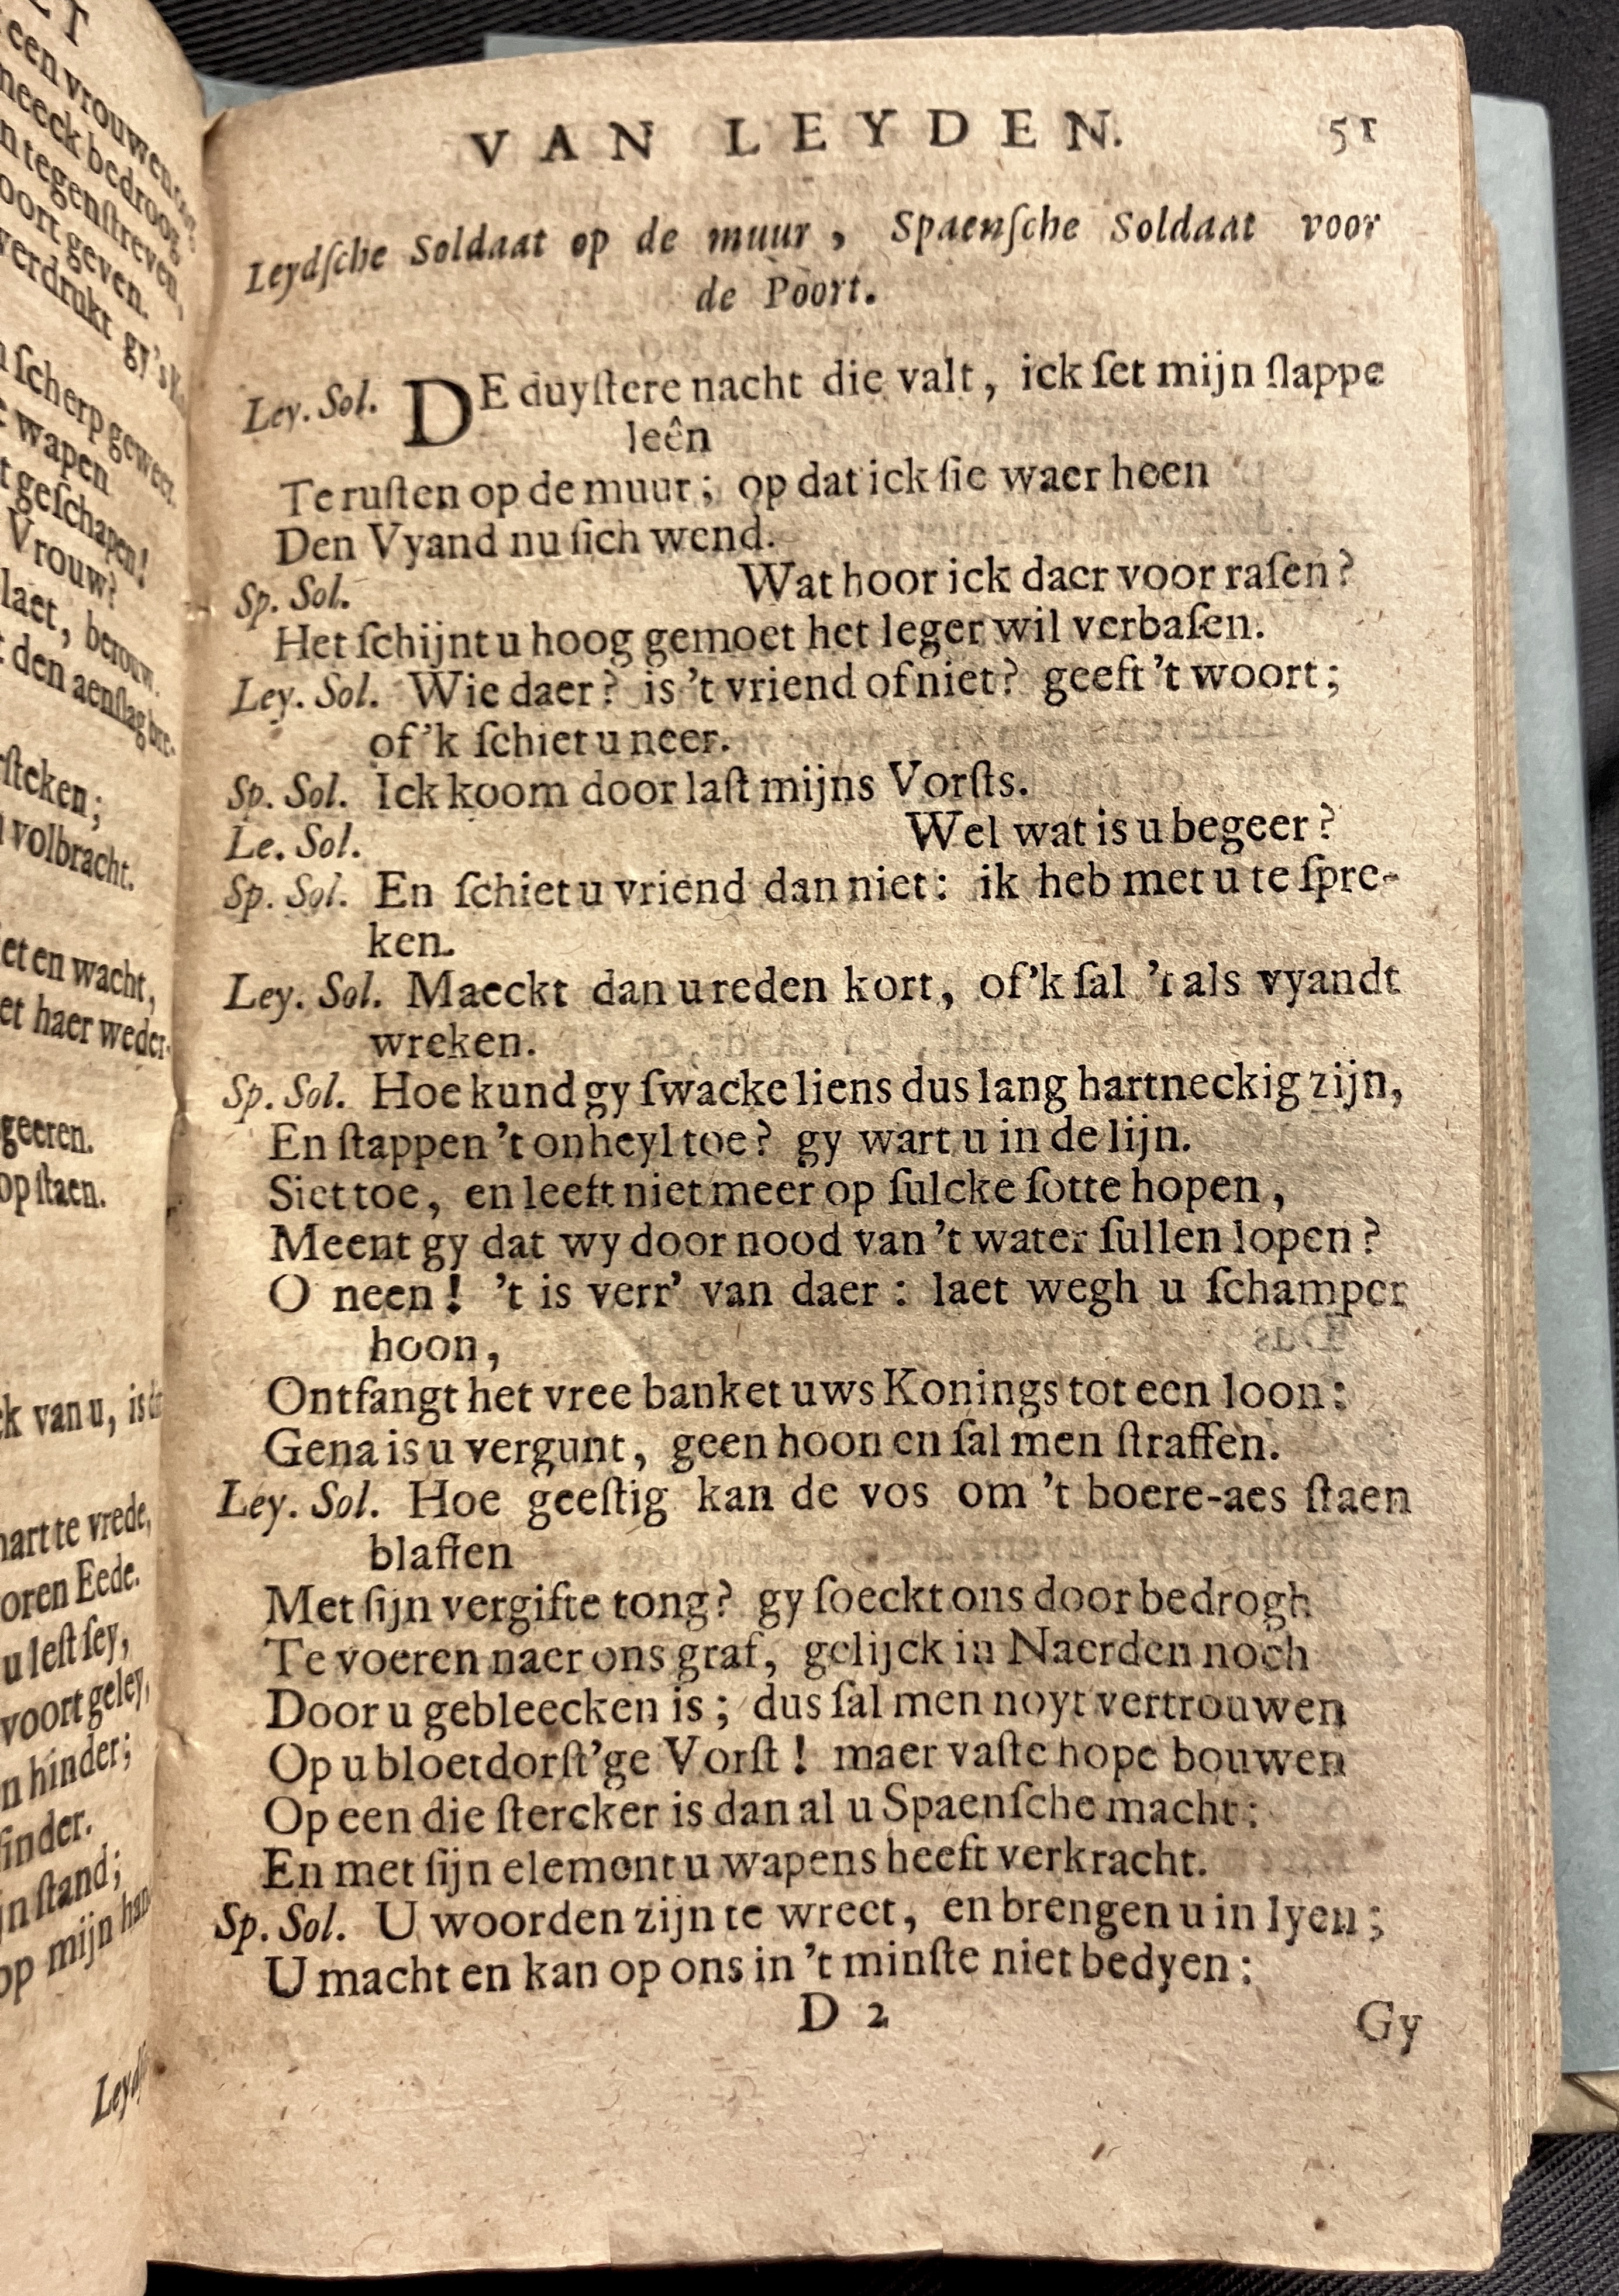 VAN LEYDEN. 51
Leydſche Soldaat op de muur, Spaenſche Soldaat voor
de Poort.
Ley. Sol. DE duyſtere nacht die valt, ick ſet mijn ſlappe
leên
Te ruſten op de muur; op dat ick ſie waer heen
Den Vyand nu ſich wend.
Sp. Sol. Wat hoor ick daer voor raſen?
Het ſchijnt u hoog gemoet het leger wil verbaſen.
Ley. Sol. Wie daer? is 't vriend of niet? geeft 't woort;
of 'k ſchiet u neer.
Sp. Sol. Ick koom door laſt mijns Vorſts.
Le. Sol. Wel wat is u begeer?
Sp. Sol. En ſchiet u vriend dan niet: ik heb met u te ſpre-
ken.
Ley. Sol. Maeckt dan u reden kort, of 'k ſal 't als vyandt
wreken.
Sp. Sol. Hoe kund gy ſwacke liens dus lang hartneckig zijn,
En ſtappen 't onheyl toe? gy wart u in de lijn.
Siet toe, en leeft niet meer op ſulcke ſotte hopen,
Meent gy dat wy door nood van 't water ſullen lopen?
O neen! 't is verr' van daer: laet wegh u ſchamper
hoon,
Ontfangt het vree banket uws Konings tot een loon:
Gena is u vergunt, geen hoon en ſal men ſtraffen.
Ley. Sol. Hoe geeſtig kan de vos om 't boere-aes ſtaen
blaffen
Met ſijn vergifte tong? gy ſoeckt ons door bedrogh
Te voeren naer ons graf, gelijck in Naerden noch
Door u gebleecken is; dus ſal men noyt vertrouwen
Op u bloetdorſt'ge Vorſt! maer vaſte hope bouwen
Op een die ſtercker is dan al u Spaenſche macht:
En met ſijn element u wapens heeft verkracht.
Sp. Sol. U woorden zijn te wreet, en brengen u in lyen;
U macht en kan op ons in 't minſte niet bedyen:
D 2 Gy